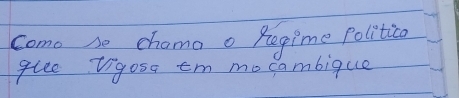 Como se chama o Regime Politico
que Vigosa em moçambique